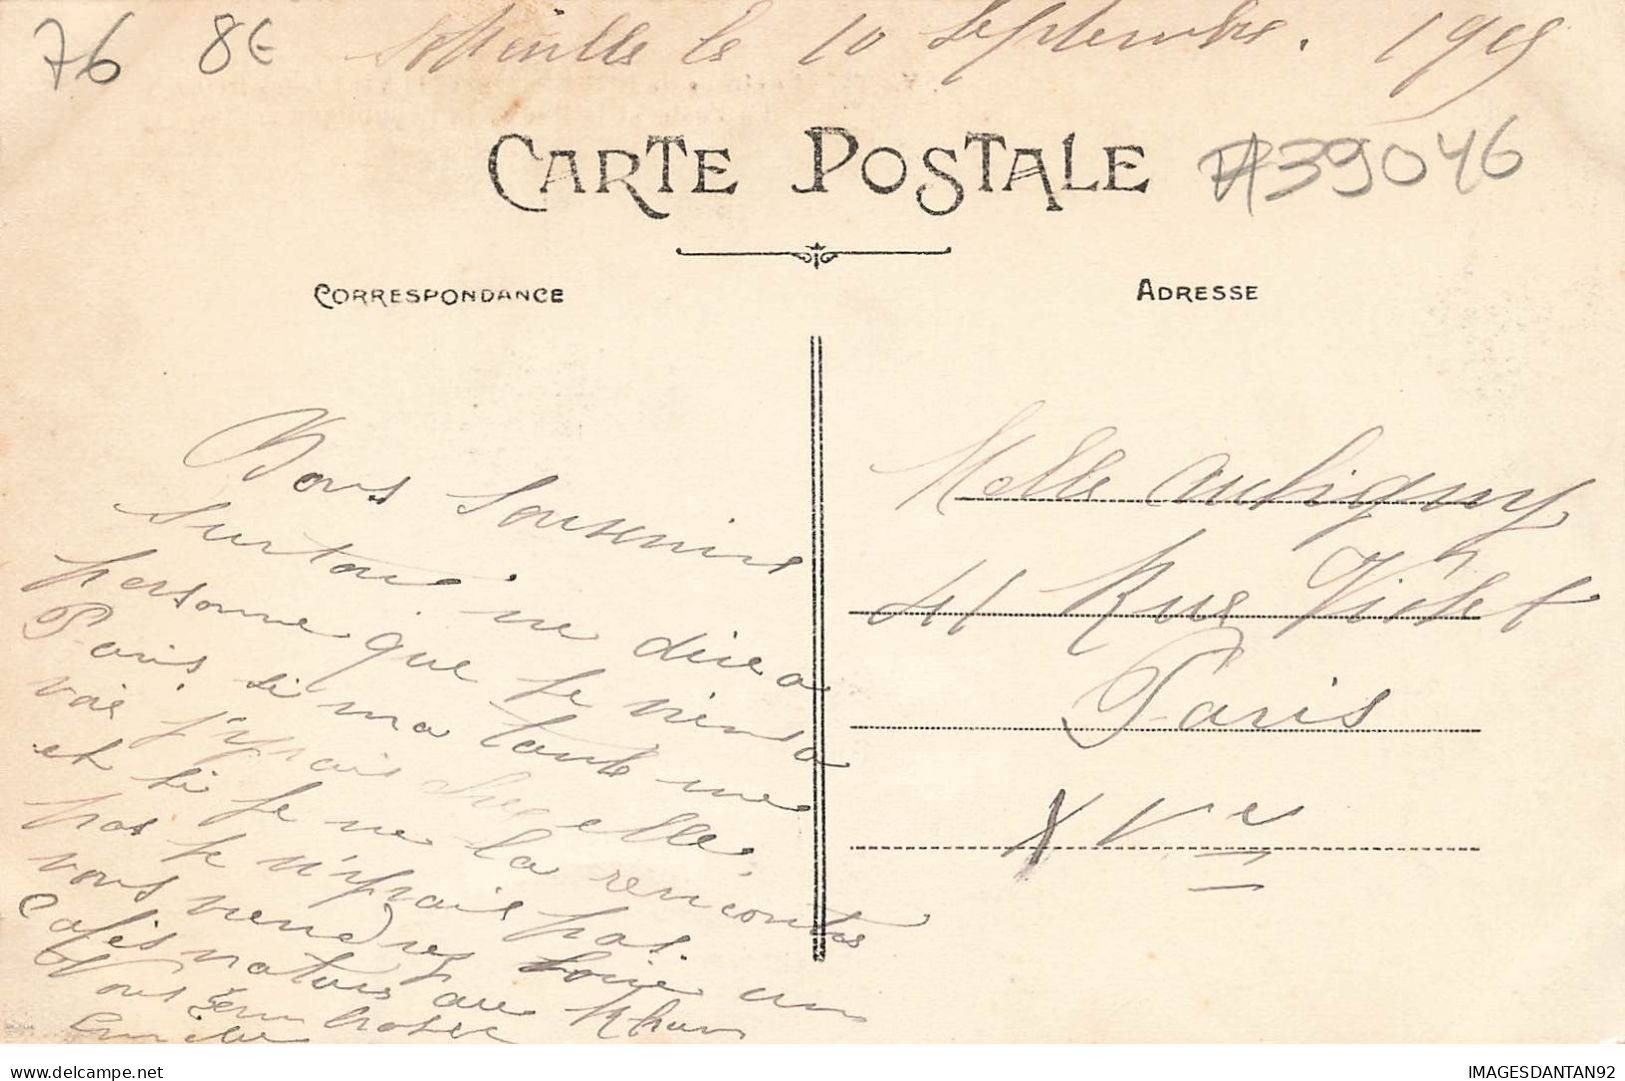 76 8€ Sotteville le 10 Septembre. 1905
CARTE POSTALE #39046
CORRESPONDANCE
ADRESSE
Bons Souvenirs
surtout ne dire a
personne que je viens a
Paris. si ma tante me
voie j'yrais chez elle,
et si je ne la rencontre
pas je n'yrais pas.
vous viendrez boire un
Cafés nature au Rhum
Vous embrasse
Emile
Melle Aubigny
41 Rue Violet
Paris
XVe
IMAGESDANTAN92